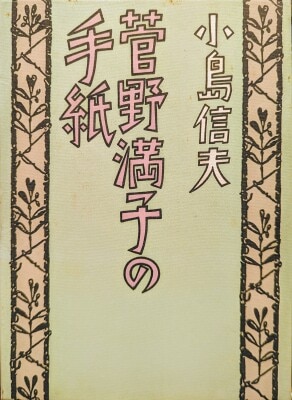 小島信夫
菅野満子の
手紙